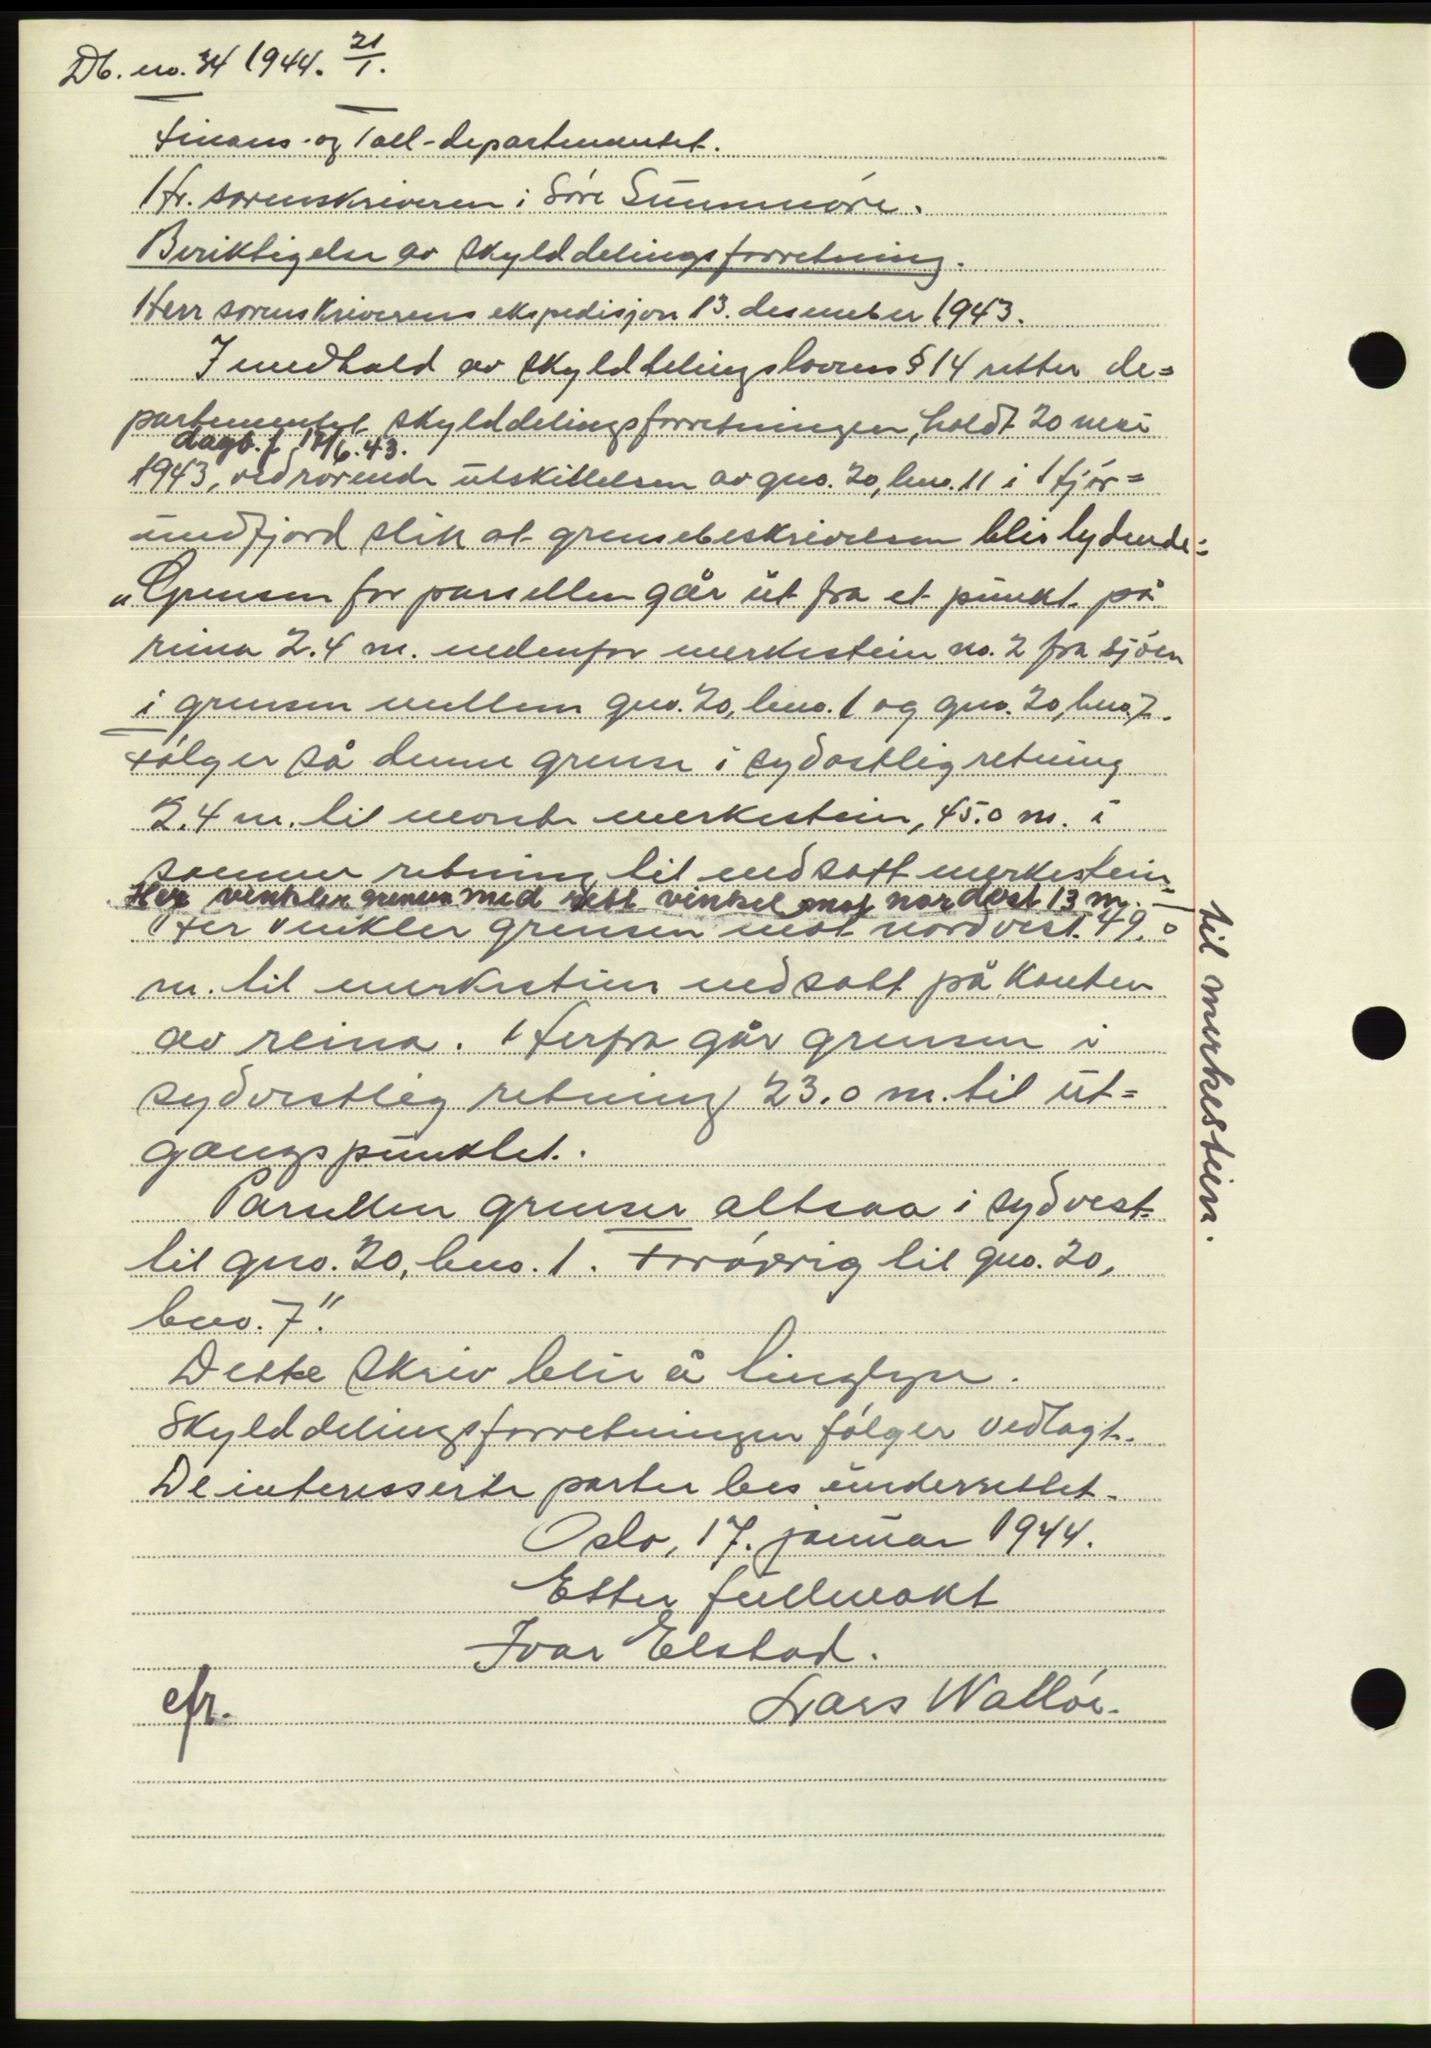 Db. no. 34 1944. 21/1.
Finans- og Toll-departementet.
Hr. sorenskriveren i Söre Sunnmöre.
Beriktigelse av skylddelingsforretning.
Herr sorenskriverens ekspedisjon 13. desember 1943.
I medhald av skylddelingslovens § 14 retter de=
partementet skylddelingsforretningen, holdt 20 mai
dagb.f 17/6.43.
1943, vedrörende utskillelsen av gno. 20, bno. 11 i Hjör=
undfjord slik at grensebeskrivelsen blir lydende:
"Grensen for parsellen går ut fra et punkt på
reina 2.4 m. nedenfor merkestein no. 2 fra sjöen
i grensen mellem gno. 20, bno. 1 og gno. 20, bno. 7.
Fölger så denne grense i sydostlig retning
2.4 m. til nevnte merkestein, 45.0 m. i
samme retning til nedsatt merkestein
Her vinkler grensen med rett vinkel mot nordöst 13 m. til merkestein.
Her vinkler grensen mot nordvest 49.0
m. til merkestein nedsatt på kanten
av reina. Herfra går grensen i
sydvestlig retning 23.0 m. til ut=
gangspunktet.
Parsellen grenser altsaa i sydvest
til gno. 20, bno. 1. Forövrig til gno. 20,
bno. 7".
Dette skriv blir å tinglyse.
Skylddelingsforretningen fölger vedlagt.
De interesserte parter bes underrettet.
Oslo, 17. januar 1944.
Etter fullmakt
Ivar Elstad.
Lars Wallöe.
efr.